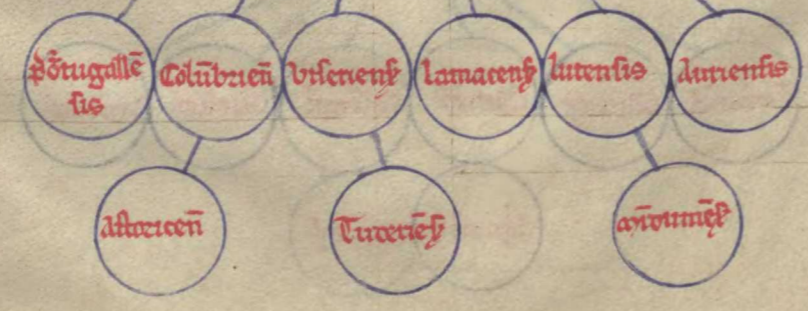 Portugallē
sis
Colūbricen̄
Visenensꝭ
Lamacensꝭ
lucensis
Auriensis
Astoricen̄
Tudēsꝭ